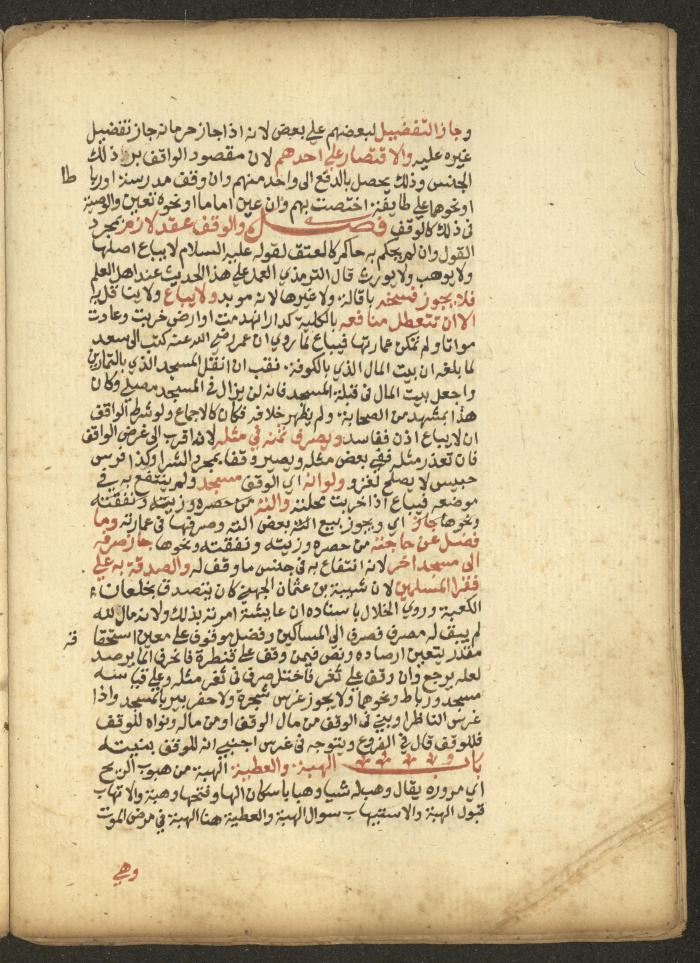 وجاز التفضيل لبعضهم على بعض لانه اذا جاز حرمانه جاز تفضيل
غيره عليه والاقتصار على احدهم لان مقصود الواقف بر ذلك
الجنس وذلك يحصل بالدفع الى واحد منهم وان وقف مدرسة او ربا
طا
او نحوهما على طايفة اختصت بهم وان عين اماما او نحوه تعين والوصية
في ذلك كالوقف فصل والوقف عقد لازم بمجرد
القول وان لم يحكم به حاكم كالعتق لقوله عليه السلام لا يباع اصلها
ولا يوهب ولا يورث قال الترمذي العمل على هذا الحديث عند اهل العلم
فلا يجوز فسخه باقالة ولا غيرها لانه موبد ولا يباع ولا يناقل به
الا ان تتعطل منافعه بالكلية كدار انهدمت او ارض خربت وعادت
مواتا ولم تمكن عمارتها فيباع لما روي ان عمر رضي الله عنه كتب الى سعد
لما بلغه ان بيت المال الذي بالكوفة نقب ان انقل المسجد الذي بالتمارين
واجعل بيت المال في قبلة المسجد فانه لن يزال في المسجد مصلي وكان
هذا بمشهد من الصحابة ولم يظهر خلافه فكان كالاجماع ولو شرط الواقف
ان لا يباع اذن ففاسد ويصرف ثمنه في مثله لانه اقرب الى غرض الواقف
فان تعذر مثله ففي بعض مثله ويصير وقفا بمجرد الشرا وكذا فرس
حبيس لا يصلح لغزو ولو انه اي الوقف مسجد ولم ينتفع به في
موضعه فيباع اذا خربت محلته والته من حصره وزيته ونفقته
ونحوها جاز اي ويجوز بيع الته بعض الته وصرفها في عمارته وما
فضل عن حاجته من حصره وزيته ونفقته ونحوها جاز صرفه
الى مسجد اخر لانه انتفاع به في جنس ما وقف له والصدقة به على
فقرا المسلمين لان شيبة بن عثمان الجهني كان يتصدق بخلعات
الكعبة وروى الخلال باسناده ان عايشة امرته بذلك ولانه مال لله
لم يبق له مصرف فصرف الى المساكين وفضل موقوف على معين استحقا
قه
مقدر يتعين ارصاده ونص فيمن وقف على قنطرة فانحرف الما يرصد
لعله يرجع وان وقف على ثغر فاختل صرف في ثغر مثله وعلى قياسه
مسجد ورباط ونحوهما ولا يجوز غرس شجرة ولا حفر بير بالمسجد واذا
غرس الناظر او بنى في الوقف من مال الوقف او من ماله ونواه للوقف
فللوقف قال في الفروع ويتوجه في غرس اجنبي انه للوقف بنيته
باب الهبة والعطية الهبة من هبوب الريح
اي مروره يقال وهب له شيا وهبا باسكان الها وفتحها وهبة والاتهاب
قبول الهبة والاستيهاب سوال الهبة والعطية هنا الهبة في مرض الموت
وهي